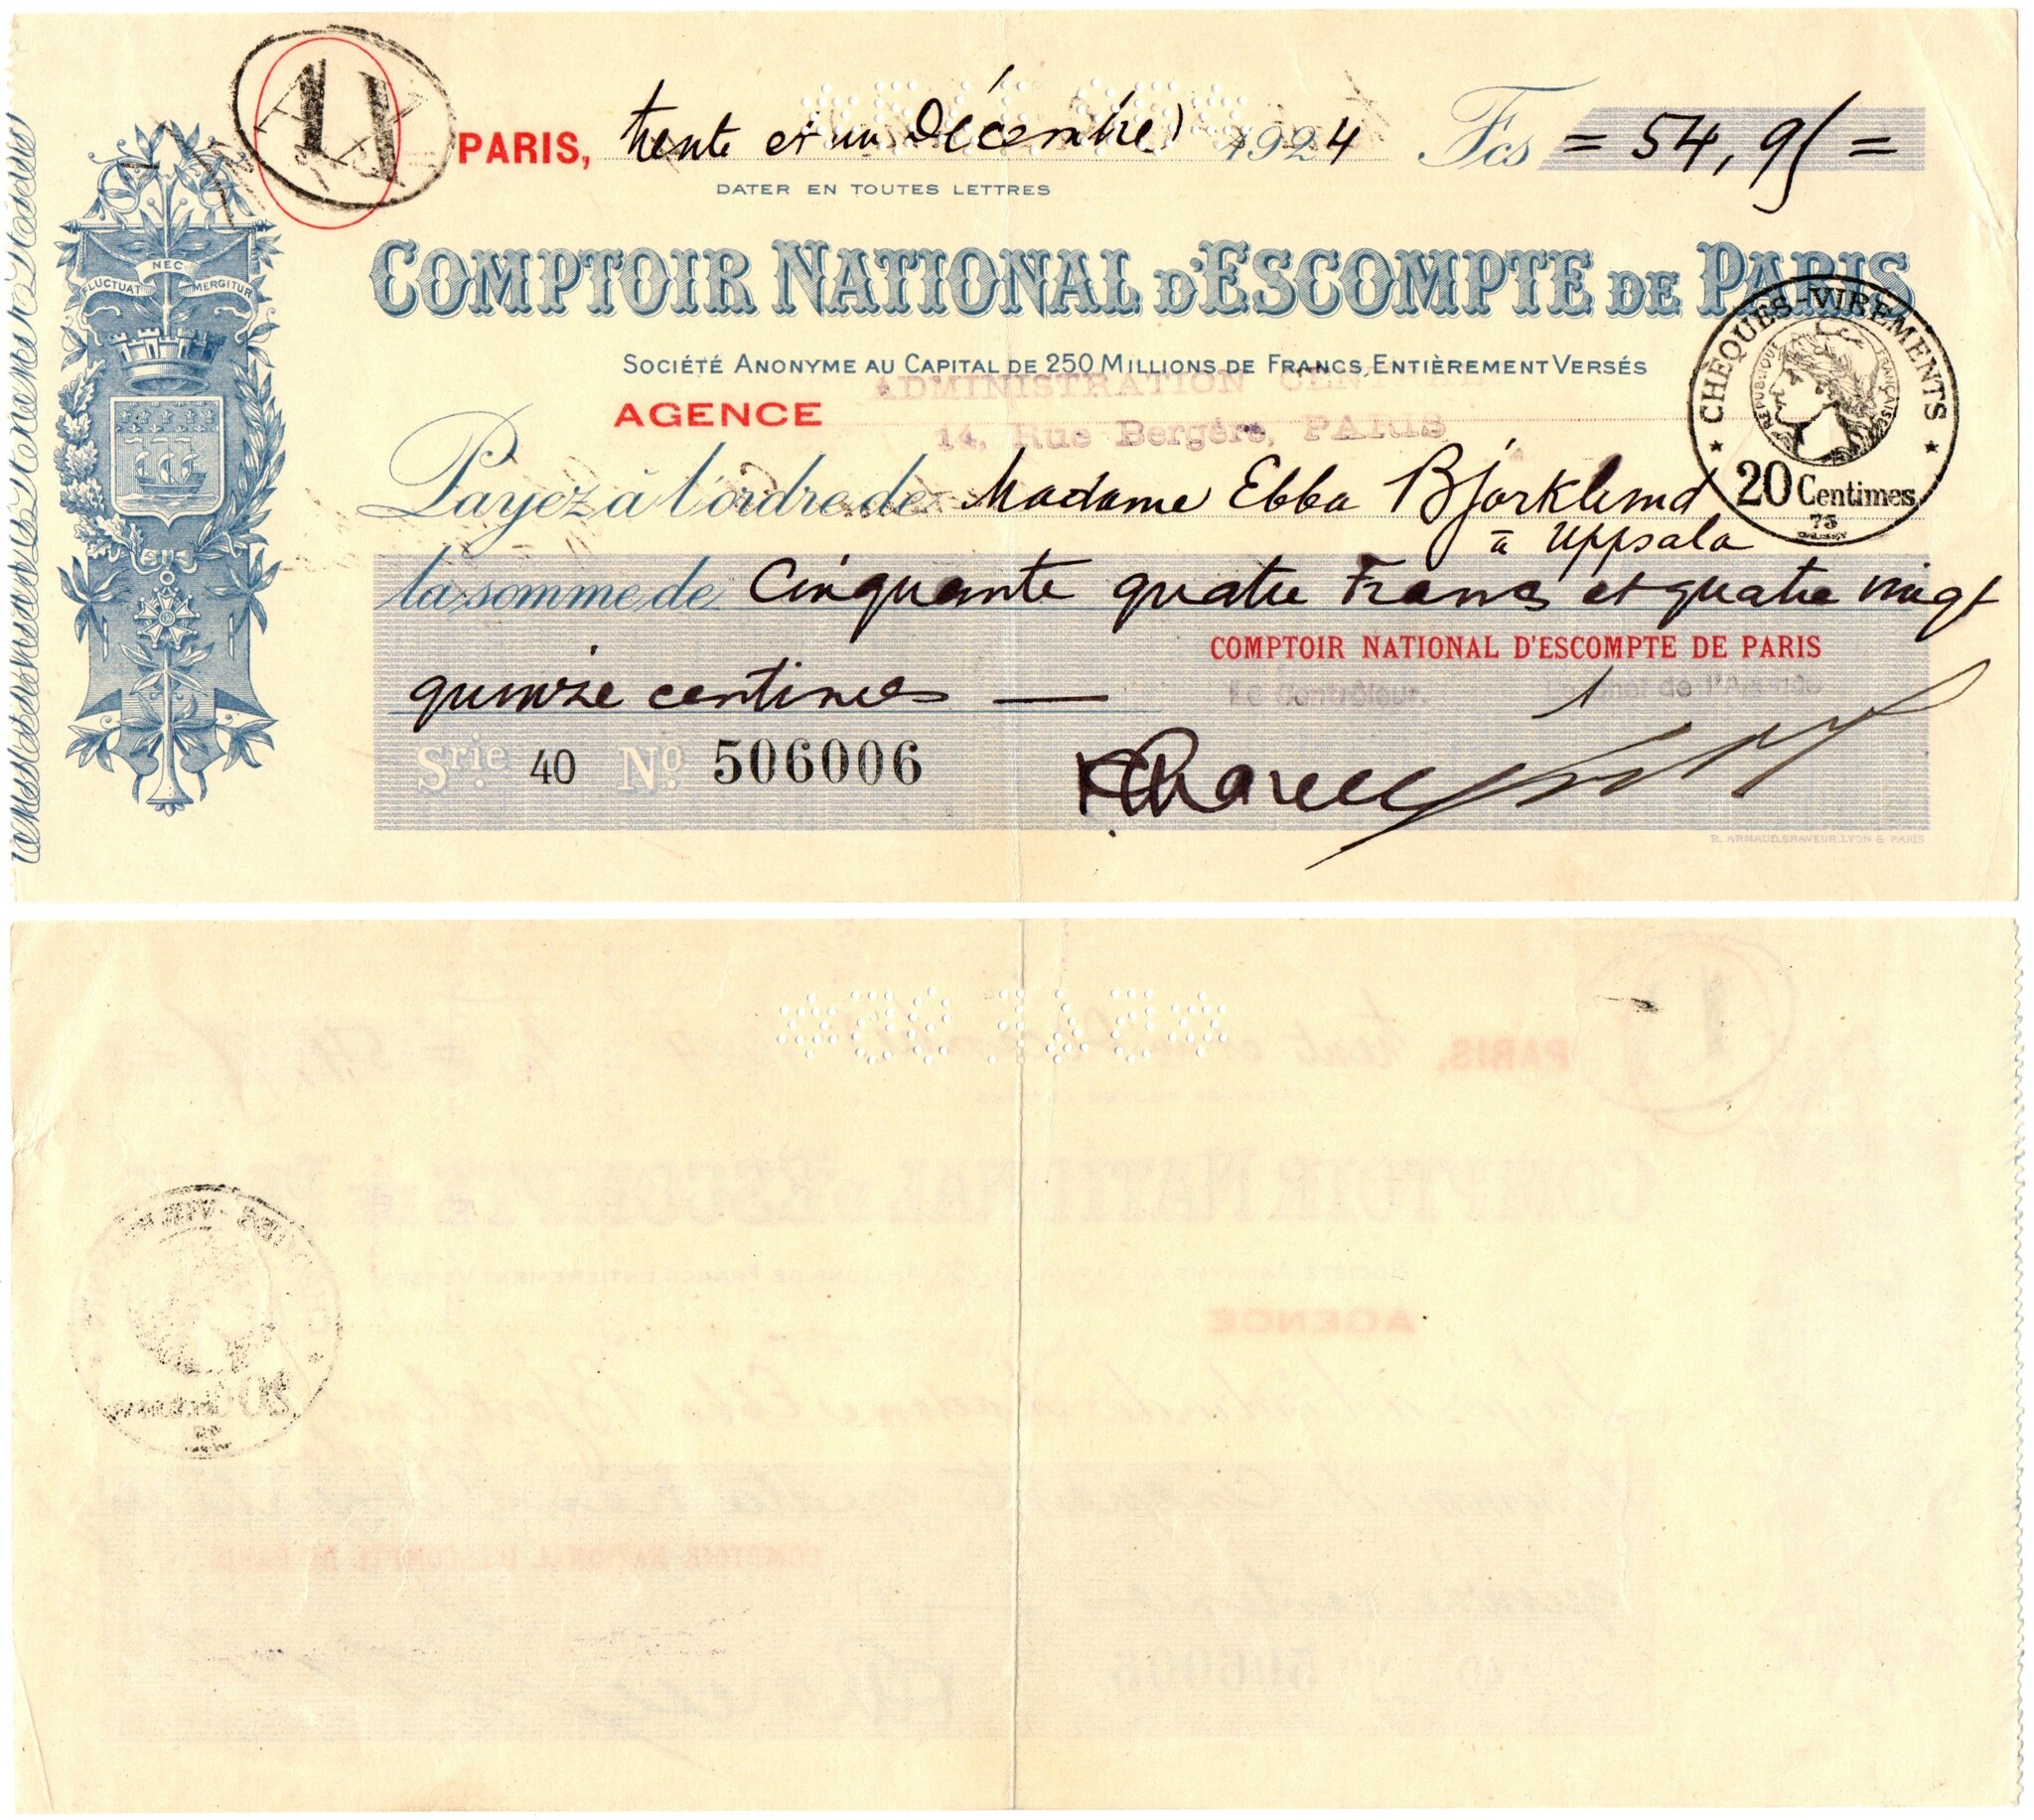 PARIS, trente et un Décembre 1924 Fcs = 54,95 =
DATER EN TOUTES LETTRES
FLUCTUAT NEC MERGITUR
COMPTOIR NATIONAL D'ESCOMPTE DE PARIS
SOCIÉTÉ ANONYME AU CAPITAL DE 250 MILLIONS DE FRANCS, ENTIÈREMENT VERSÉS
ADMINISTRATION CENTRALE
AGENCE
14, Rue Bergère, PARIS
CHÈQUES-VIREMENTS
RÉPUBLIQUE FRANÇAISE
20 Centimes
73
Payez à l'ordre de Madame Ebba Bjorklund
à Uppsala
la somme de Cinquante quatre Francs et quatre vingt
COMPTOIR NATIONAL D'ESCOMPTE DE PARIS
quinze centimes —
Le Contrôleur. Le Chef de l'Agence
Srie 40 No 506006
R. ARNAUD, GRAVEUR, LYON & PARIS
*54F95*